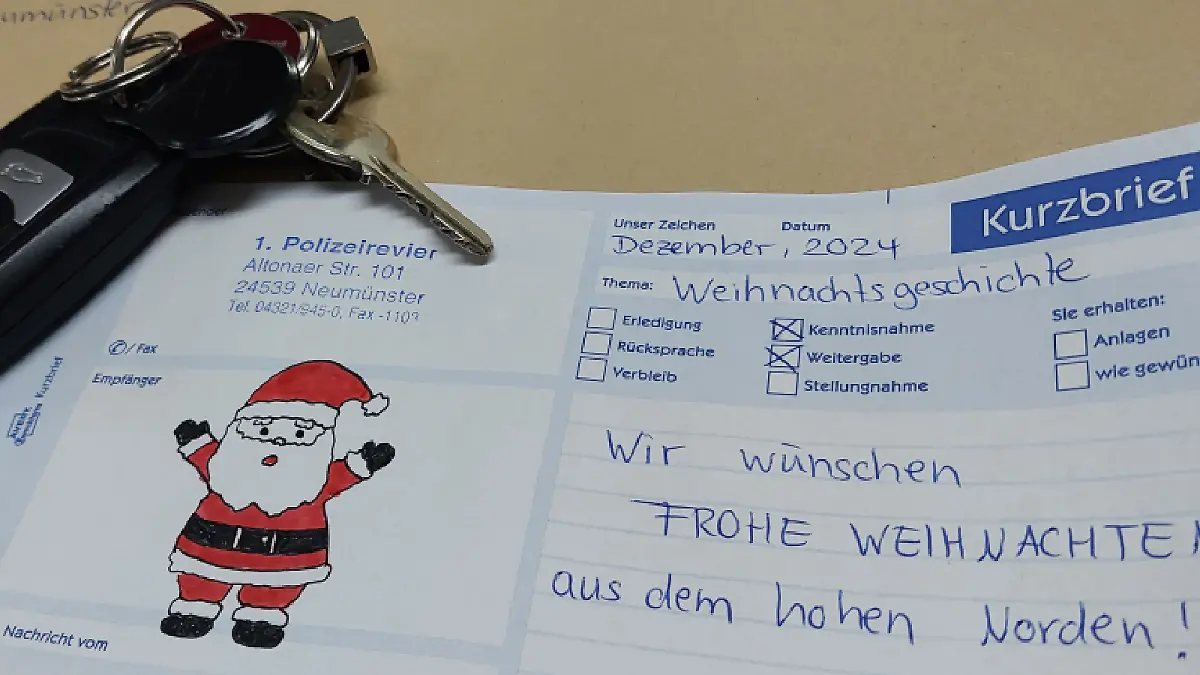 Kurzbrief
Unser Zeichen Datum
Dezember, 2024
Thema: Weihnachtsgeschichte
1. Polizeirevier
Altonaer Str. 101
24539 Neumünster
Tel. 04321/945-0, Fax -1103
✆/ Fax
Empfänger
Nachricht vom
Kurzbrief
Erledigung
Rücksprache
Verbleib
Kenntnisnahme
Weitergabe
Stellungnahme
Sie erhalten:
Anlagen
wie gewün
Wir wünschen
FROHE WEIHNACHTEN
aus dem hohen Norden!